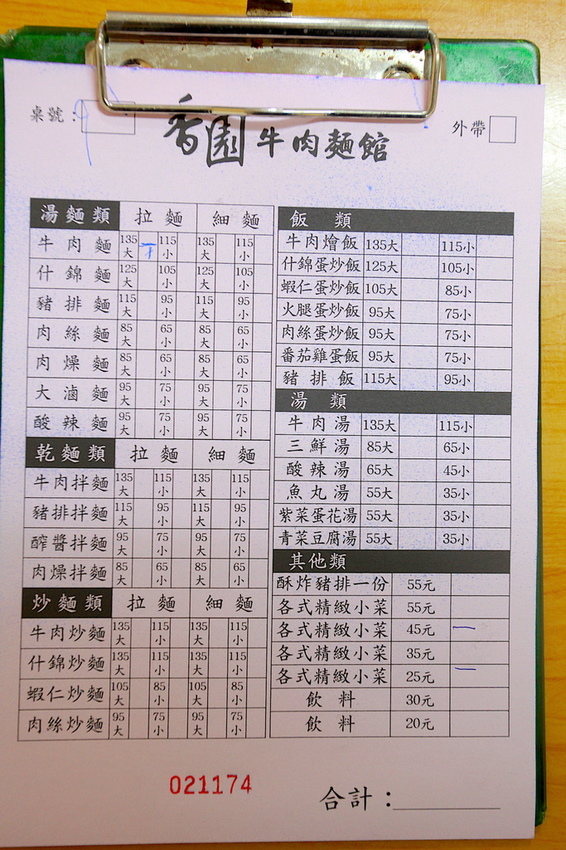 桌號：
外帶
香園牛肉麵館
湯麵類 拉麵 細麵
牛肉麵 135大 115小 135大 115小
什錦麵 125大 105小 125大 105小
豬排麵 115大 95小 115大 95小
肉絲麵 85大 65小 85大 65小
肉燥麵 85大 65小 85大 65小
大滷麵 95大 75小 95大 75小
酸辣麵 95大 75小 95大 75小
乾麵類 拉麵 細麵
牛肉拌麵 135大 115小 135大 115小
豬排拌麵 115大 95小 115大 95小
醡醬拌麵 95大 75小 95大 75小
肉燥拌麵 85大 65小 85大 65小
炒麵類 拉麵 細麵
牛肉炒麵 135大 115小 135大 115小
什錦炒麵 135大 115小 135大 115小
蝦仁炒麵 105大 85小 105大 85小
肉絲炒麵 95大 75小 95大 75小
飯類
牛肉燴飯 135大 115小
什錦蛋炒飯 125大 105小
蝦仁蛋炒飯 105大 85小
火腿蛋炒飯 95大 75小
肉絲蛋炒飯 95大 75小
番茄雞蛋飯 95大 75小
豬排飯 115大 95小
湯類
牛肉湯 135大 115小
三鮮湯 85大 65小
酸辣湯 65大 45小
魚丸湯 55大 35小
紫菜蛋花湯 55大 35小
青菜豆腐湯 55大 35小
其他類
酥炸豬排一份 55元
各式精緻小菜 55元
各式精緻小菜 45元
各式精緻小菜 35元
各式精緻小菜 25元
飲料 30元
飲料 20元
021174
合計：